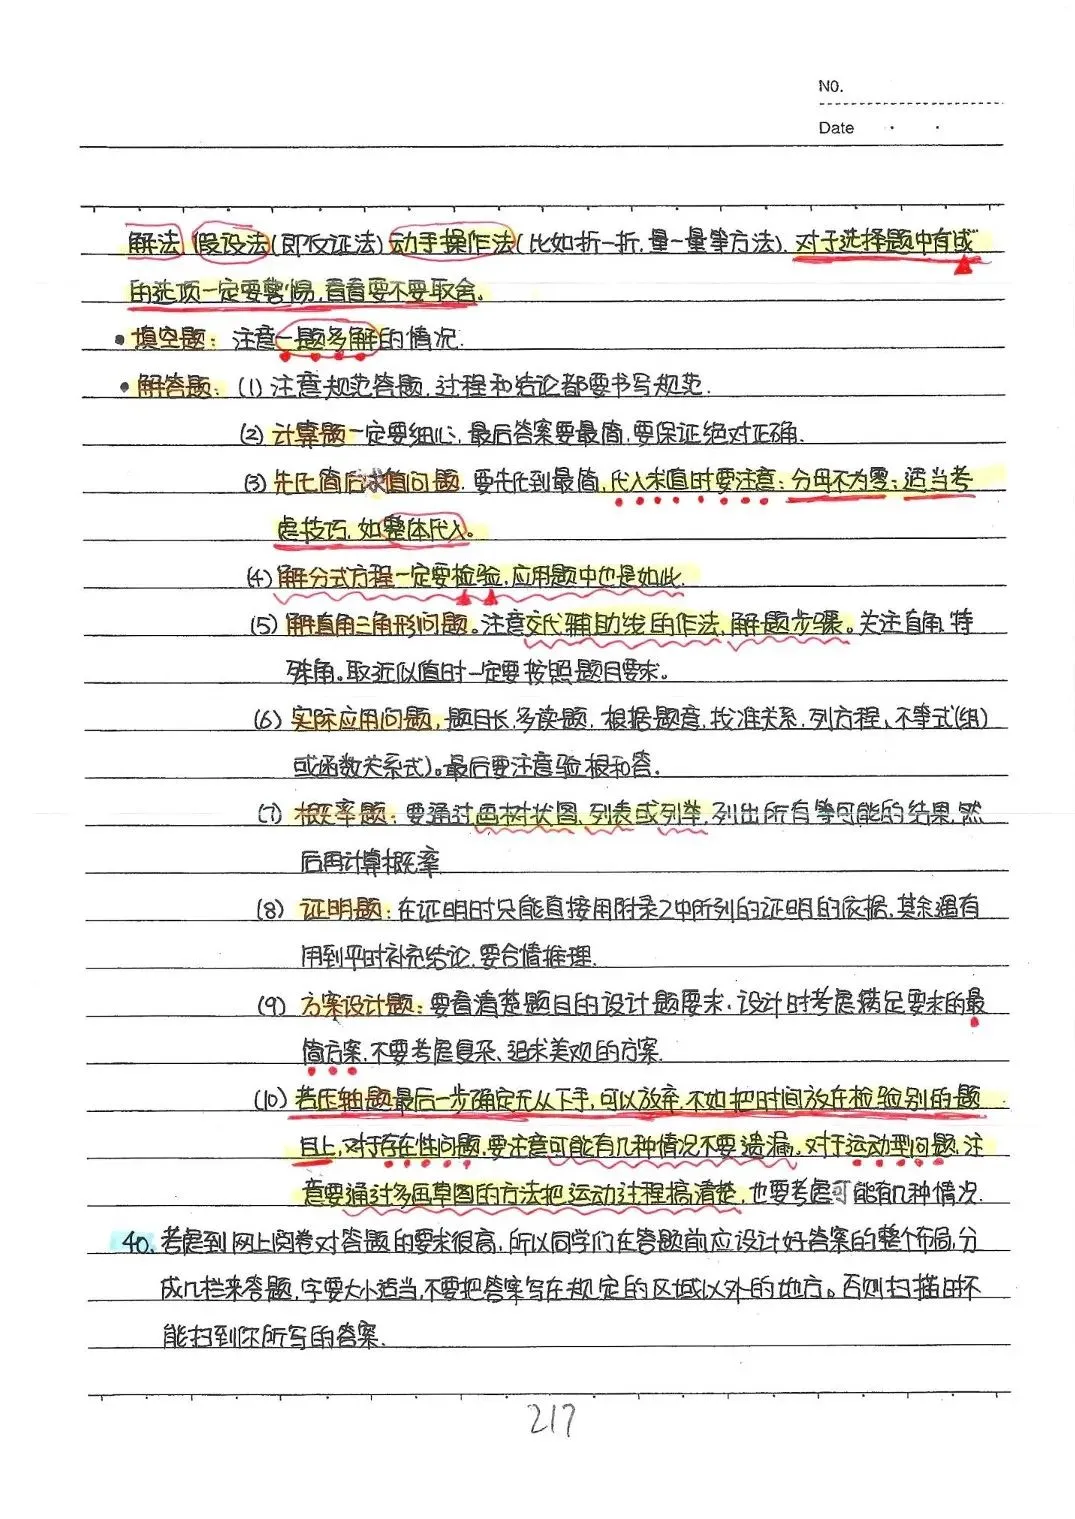 NO.
Date
解法,假设法(即反证法)动手操作法(比如折一折,量一量等方法).对于选择题中有"或"
的选项一定要警惕,看看要不要取舍。
• 填空题: 注意一题多解的情况.
• 解答题: (1) 注意规范答题,过程和结论都要书写规范.
(2) 计算题一定要细心,最后答案要最简,要保证绝对正确.
(3) 先化简后求值问题.要先化到最简,代入求值时要注意:分母不为零;适当考
虑技巧,如整体代入。
(4) 解分式方程一定要检验,应用题中也是如此.
(5) 解直角三角形问题。注意交代辅助线的作法,解题步骤。关注直角,特
殊角。取近似值时一定要按照题目要求。
(6) 实际应用问题,题目长,多读题,根据题意,找准关系,列方程、不等式(组)
或函数关系式)。最后要注意验根和答.
(7) 概率题:要通过画树状图、列表或列举,列出所有等可能的结果,然
后再计算概率
(8) 证明题:在证明时只能直接用附录2中所列的证明的依据,其余遇有
用到平时补充结论,要合情推理.
(9) 方案设计题:要看清楚题目的设计题要求.设计时考虑满足要求的最
简方案,不要考虑复杂、追求美观的方案.
(10) 若压轴题最后一步确定无从下手,可以放弃.不如把时间放在检验别的题
目上,对于存在性问题,要注意可能有几种情况不要遗漏。对于运动型问题,注
意要通过多画草图的方法把运动过程搞清楚,也要考虑可能有几种情况.
40. 考虑到网上阅卷对答题的要求很高,所以同学们在答题前应设计好答案的整个布局,分
成几栏来答题,字要大小适当,不要把答案写在规定的区域以外的地方。否则扫描时不
能扫到你所写的答案.
217